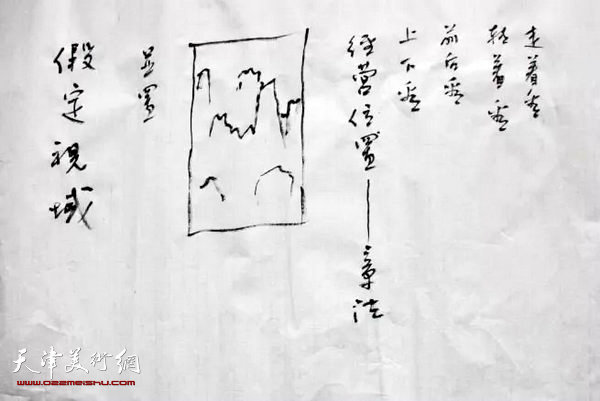 走着看
转着看
前后看
上下看
经营位置——章法
显置
假定視域
天津美術網
www.022meishu.com